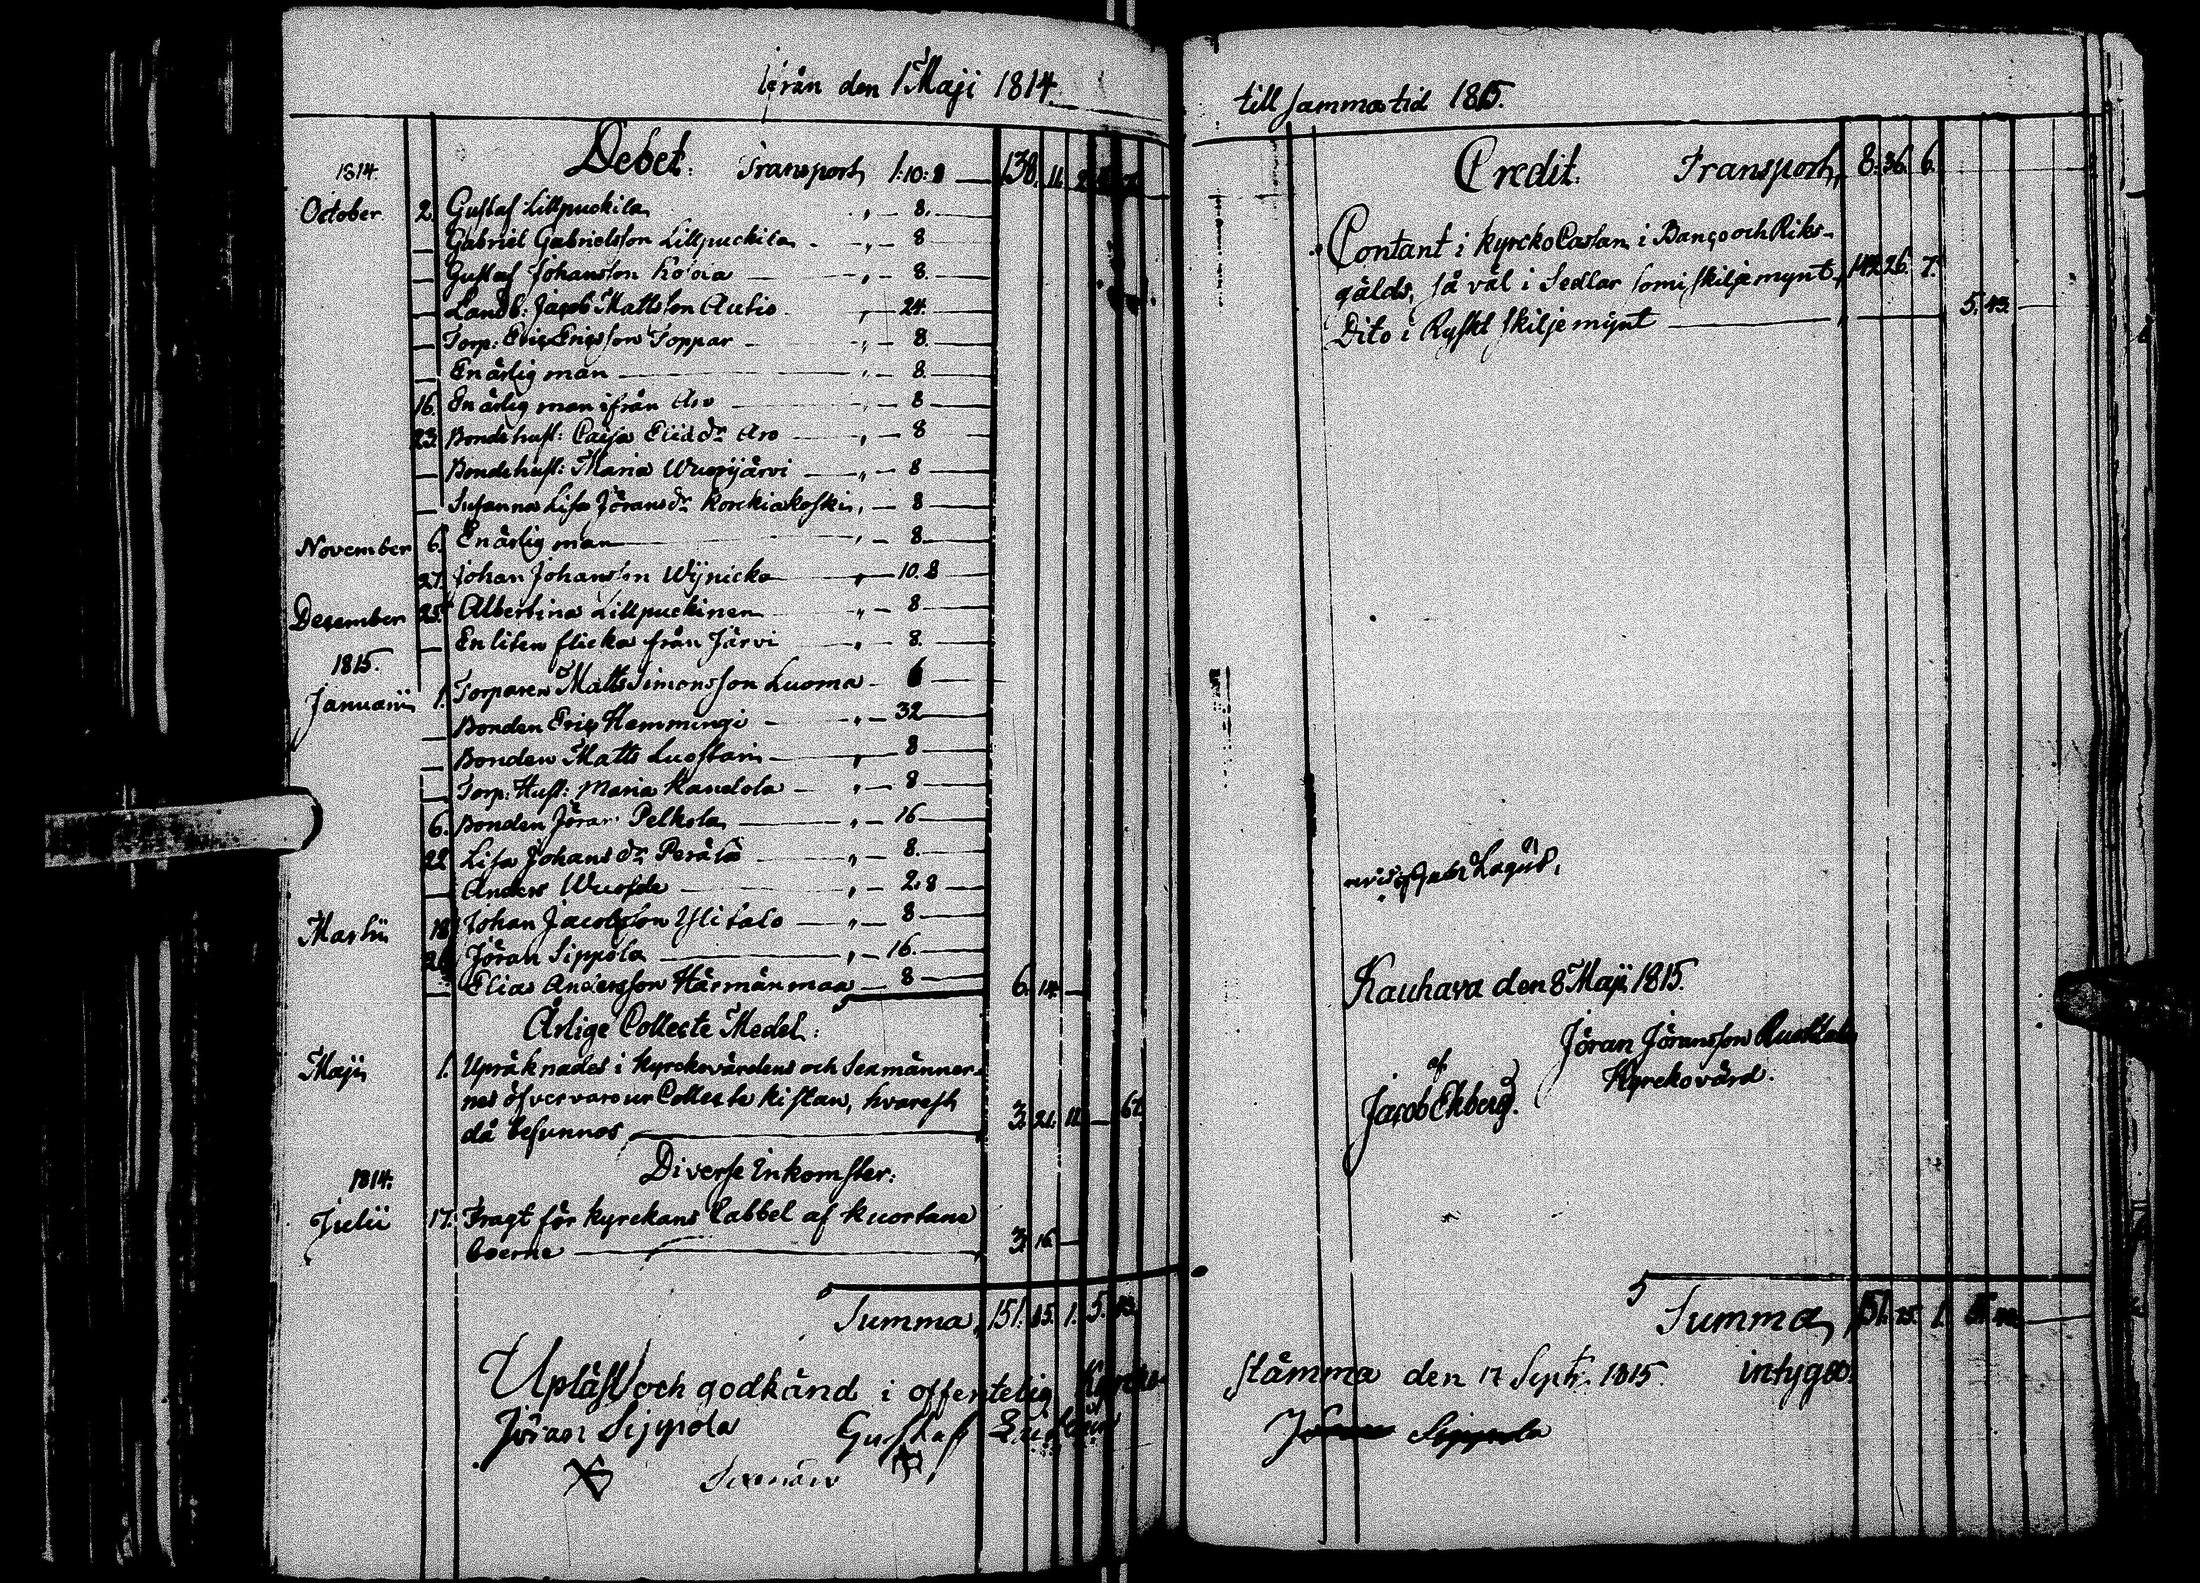 ifrån den 1 Maji 1814
Debet. Transport, 1:10:8 — 138. 11. 2.
1814.
October 2. Gustaf Lillpuckila " — 8.
— Gabriel Gabrielsson Lillpuckila — " — 8
— Gustaf Johansson Kojola — " — 8.
— Landb: Jacob Mattsson Autio — 24.
— Torp: Eric Ericsson Toppar — " — 8.
— En ärlig man — " — 8.
16. En ärlig man ifrån Aro — 8
23. Bondehust: Caisa Eliæ dr Aro — " — 8
— Bondehust: Maria Wuorijärvi — " — 8
— Susanna Lisa Jörans dr Korckiakoski " — 8
November 6. En ärlig man — " — 8.
27. Johan Johansson Wijnicka — " — 10.8
December 25. Albertina Lillpuckinen — " — 8
— En liten flicka från Järvi — " — 8.
1815.
Januarii 1. Torparen Matts Simonsson Luoma — 6
— Bonden Eric Hemmingi — " — 32
— Bonden Matts Luostari — " — 8
— Torp: Hust: Maria Kandola — " — 8
6. Bonden Jöran Pelkola — " — 16
22 Lisa Johans dr Perälä — " — 8.
— Anders Wuosde — " — 2.8
Martii 18 Johan Jacobsson Ylitalo — " — 8
26 Jöran Sippola — " — 16.
— Elias Andersson Härmänmaa — 8 — 6. 14. —
Ärlige Collecte Medel:
Maji 1. Upräknades i kyrckovärdens och Sexmänner-
nes öfvervaro ur Collecte kistan, hvarest
då befunnos — 3. 21. 11. — 67.
Diverse Inkomster:
1814.
Julii 17. Fragt för kyrckans Cabbel af Kuortane
boerne — 3. 16 —
Summa, 151. 25. 1. 5. 43.
Upläst och godkänd i offentelig Kyrcko
Jöran Sippola Gustaf
Sexmän
till samma tid 1815.
Credit. Transport, 8. 36. 6.
Contant i Kyrcko Cassan i Banco och Riks-
gälds, så väl i Sedlar som i skiljemynt, 142. 26. 7.
Dito i Ryskt skiljemynt — 5. 43. —
Lagus.
Kauhava den 8 Maji 1815.
Jöran Jöransson
Kyrckovärd.
af
Jacob Ekberg.
Summa, 151. 25. 1. 5. 43. —
stämma den 17 Septr. 1815. intygas.
Sippola